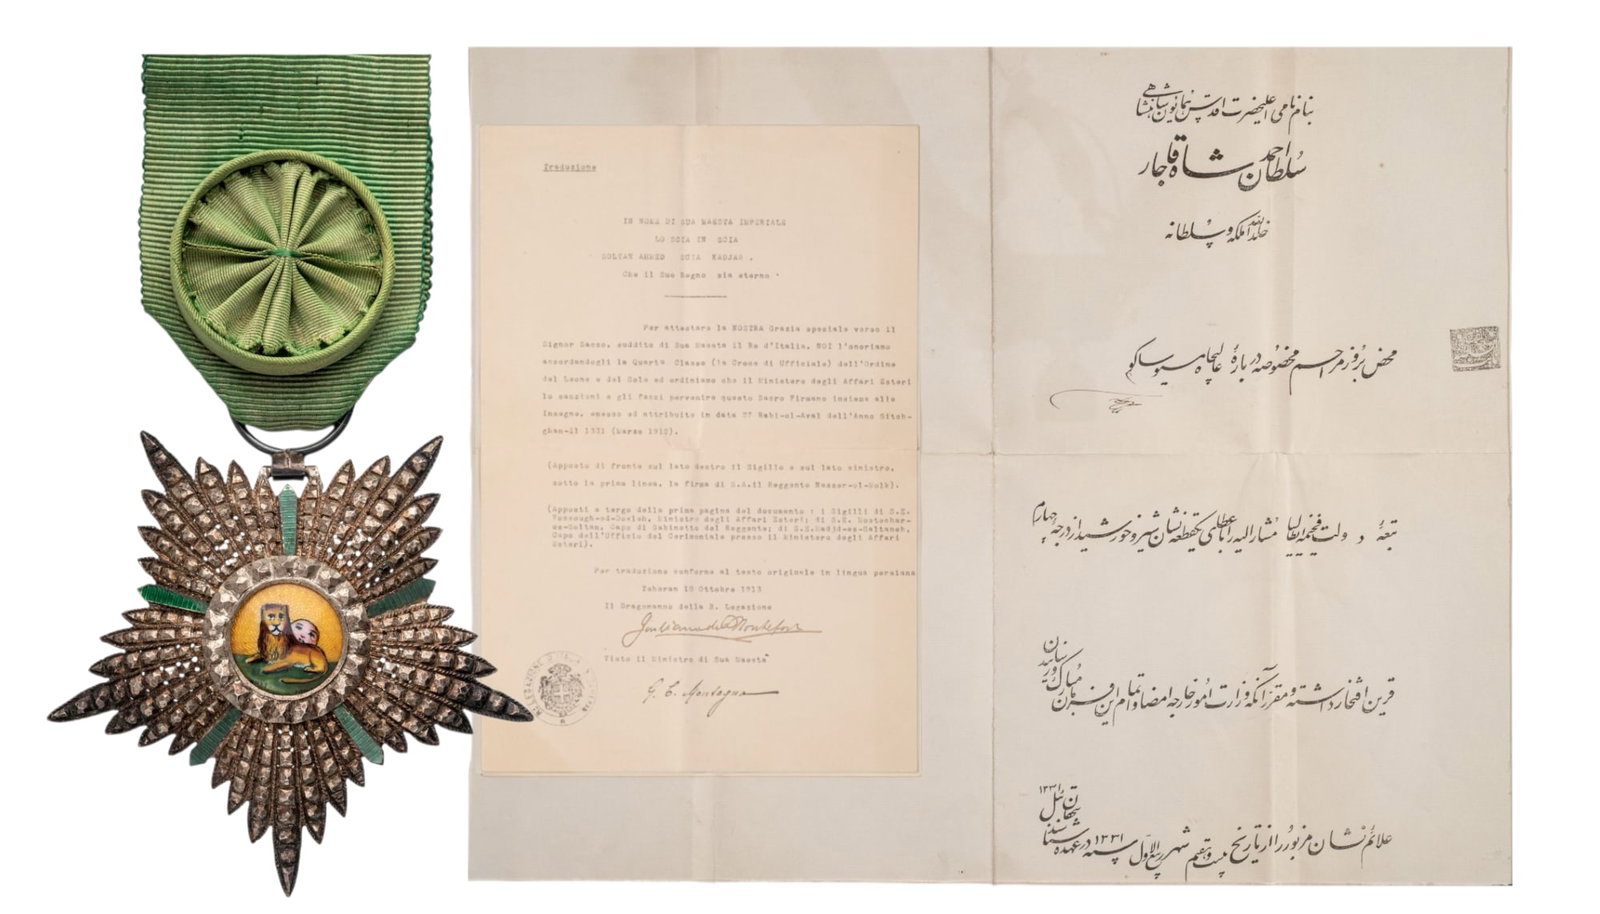 Traduzione
IN NOME DI SUA MAESTA IMPERIALE
LO SCIA IN SCIA
SOLTAN AHMED SCIA KADJAR .
Che il Suo Regno sia eterno
Per attestare la NOSTRA Grazia speciale verso il
Signor Sacco, suddito di Sua Maestà il Re d'Italia, NOI l'onoriamo
accordandogli la Quarta Classe (la Croce di Ufficiale) dell'Ordine
del Leone e del Sole ed ordiniamo che il Ministero degli Affari Esteri
lo sanzioni e gli facci pervenire questo Sacro Firmano insieme alle
Insegne, emesso ed attribuito in data 27 Rabi-ol-Aval dell'Anno Sitch-
ghan-il 1331 (Marzo 1912).
(Apposto di fronte sul lato destro il Sigillo e sul lato sinistro,
sotto la prima linea, la firma di S.A.il Reggente Nasser-ol-Molk).
(Apposti a tergo della prima pagina del documento : i Sigilli di S.E.
Vossough-ed-Dovleh, Ministro degli Affari Esteri; di S.E. Mostechar-
es-Soltan, Capo di Gabinetto del Reggente; di S.E.Madjd-es-Saltaneh,
Capo dell'Ufficio del Cerimoniale presso il Ministero degli Affari
Esteri).
Per traduzione conforme al testo originale in lingua persiana
Teheran 18 Ottobre 1913
Il Dragomanno della R. Legazione
Visto il Ministro di Sua Maestà
G. C. Montagna
بنام نامی اعلیحضرت اقدس همایون شاهنشاهی
سلطان احمد شاه قاجار
خلدالله ملکه و سلطانه
محض بروز مراحم مخصوصه درباره عالیجاه مسیو ساکو
تبعه دولت فخیمه ایطالیا مشارالیه را باعطای یکقطعه نشان شیر و خورشید از درجه چهارم
قرین افتخار داشته و مقرر آنکه وزارت امور خارجه امضا و تمام این فرمان مبارک را رسانیدن
علائم نشان مزبور را از تاریخ بیست و هفتم شهر ربیع الاول سنه ۱۳۳۱ در عهده شناسند
۱۳۳۱